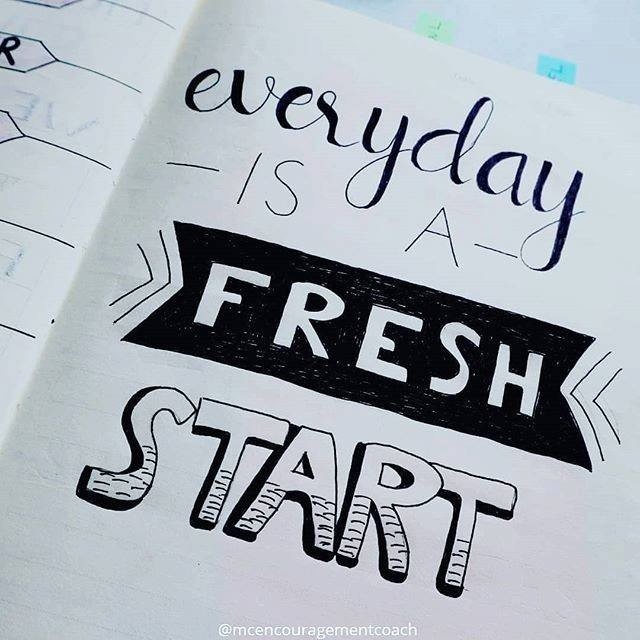 everyday
- IS A -
FRESH
START
R
@mcencouragementcoach